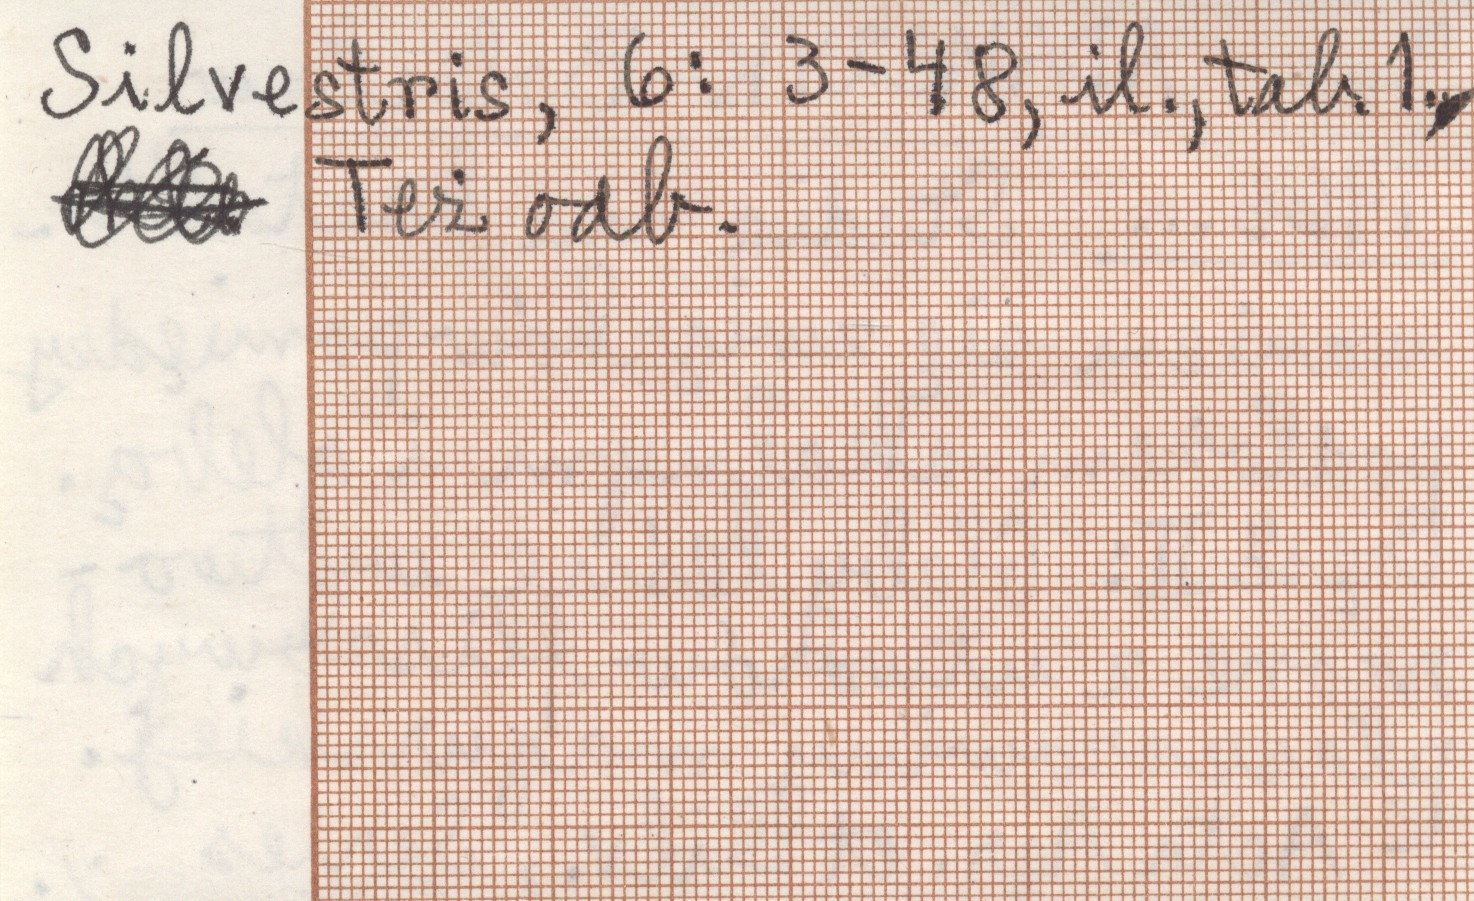 Silvestris, 6: 3-48, il., tab. 1.,
Też odb.